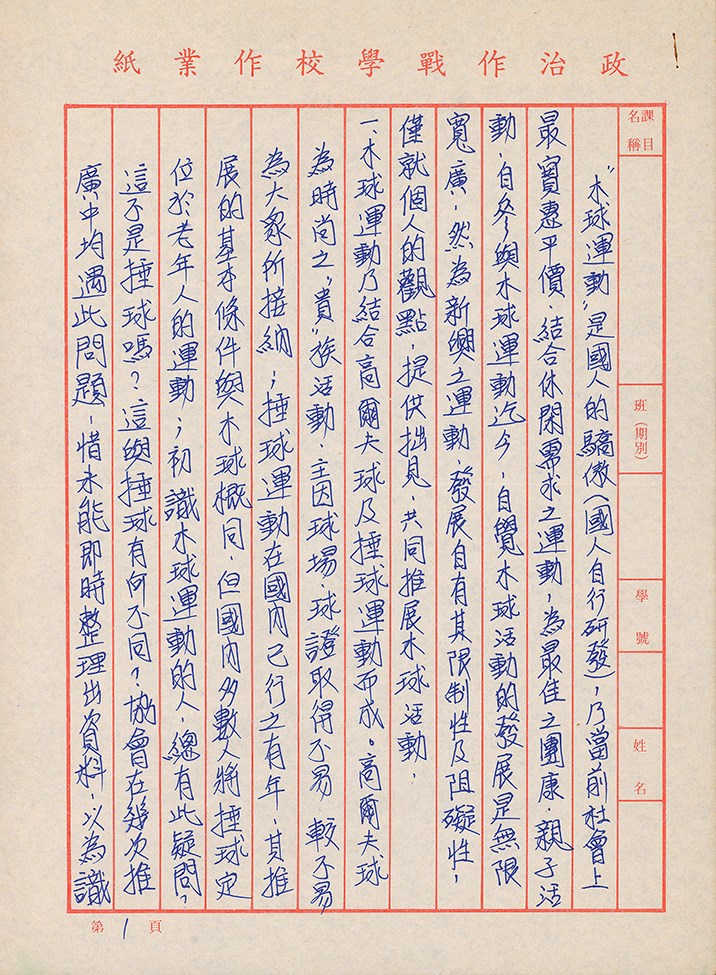 政治作戰學校作業紙
課目名稱
班(期別)
學號
姓名
"木球運動"是國人的驕傲(國人自行研發),乃當前社會上
最實惠平價、結合休閒需求之運動,為最佳之團康、親子活
動,自參與木球運動迄今,自覺木球活動的發展是無限
寬廣,然為新興之運動,發展自有其限制性及阻礙性,
僅就個人的觀點,提供拙見,共同推展木球活動,
一、木球運動乃結合高爾夫球及捶球運動而成。高爾夫球
為時尚之"貴"族活動,主因球場、球證取得不易,較不易
為大衆所接納;捶球運動在國內已行之有年,其推
展的基本條件與木球概同,但國內多數人將捶球定
位於老年人的運動,;初識木球運動的人,總有此疑問,
這不是捶球嗎?這與捶球有何不同?協會在幾次推
廣中均遇此問題,惜未能即時整理出資料,以為識
第1頁